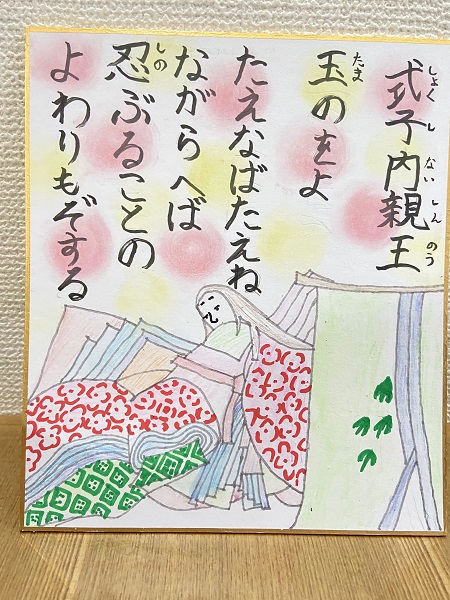 式子内親王
しょくしないしんのう
玉のをよ
たま
たえなばたえね
ながらへば
忍ぶることの
しの
よわりもぞする